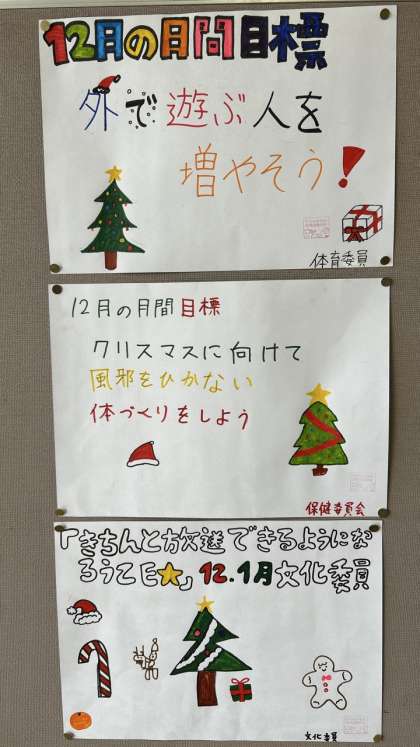 12月の月問目標
外で遊ぶ人を
増やそう!
体育委員
12月の月間目標
クリスマスに向けて
風邪をひかない
体づくりをしよう
保健委員会
「きちんと放送できるようにな
ろうZE☆」12.1月文化委員
文化委員